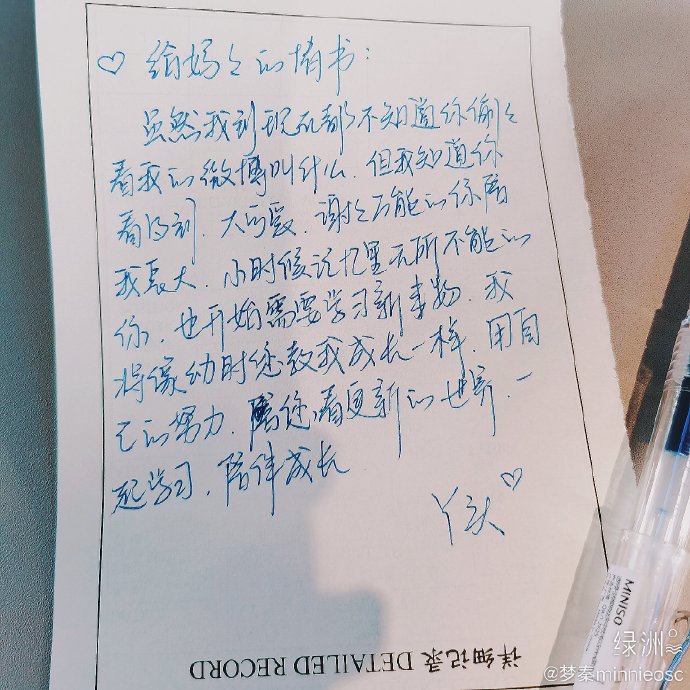 ♡ 给妈々的情书：
虽然我到现在都不知道你偷々
看我的微博叫什么，但我知道你
看得到，大可爱，谢谢万能的你陪
我长大，小时候记忆里无所不能的
你，也开始需要学习新事物，我
将像幼时您教我成长一样，用自
己的努力，陪您看更新的世界，一
起学习，陪伴成长
丫头♡
详细记录 DETAILED RECORD
MINISO
绿洲
@梦秦minnieosc